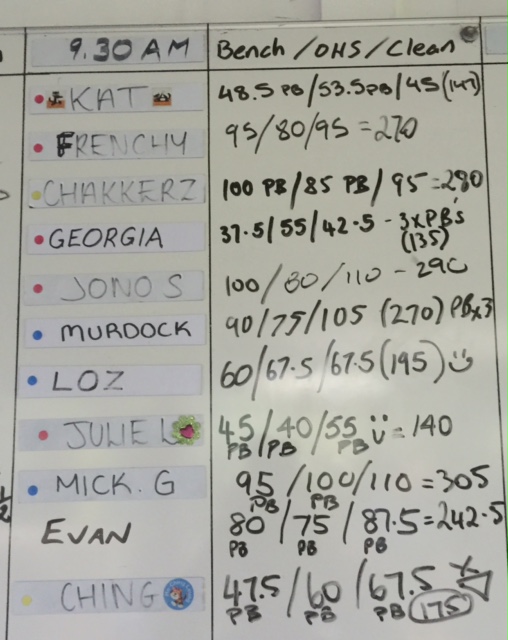 9.30 AM Bench/OHS/Clean
KAT 48.5 PB/53.5PB/45(147)
FRENCHY 95/80/95=270
CHAKKERZ 100 PB/85 PB/95=280
GEORGIA 37.5/55/42.5 - 3xPB's
(135)
JONO S 100/80/110 - 290
MURDOCK 90/75/105 (270) PBx3
LOZ 60/67.5/67.5(195)
JULIE L 45/40/55 = 140
PB PB PB
MICK. G 95/100/110=305
PB PB
EVAN 80/75/87.5=242.5
PB PB PB
CHING 47.5/60/67.5
PB PB PB 175